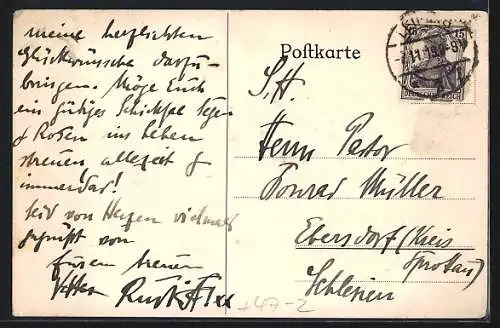 meine herzlichsten
Glückwünsche darzu-
bringen. Möge Euch
ein gütiges Schicksal Segen
& Rosen ins Leben
streuen allezeit &
immerdar!
Seid von Herzen vielmals
gegrüßt von
Eurem treuen
Vetter
Postkarte
S. H.
Herrn Pastor
Konrad Müller
Ebersdorf (Kreis
Sprottau)
Schlesien
15